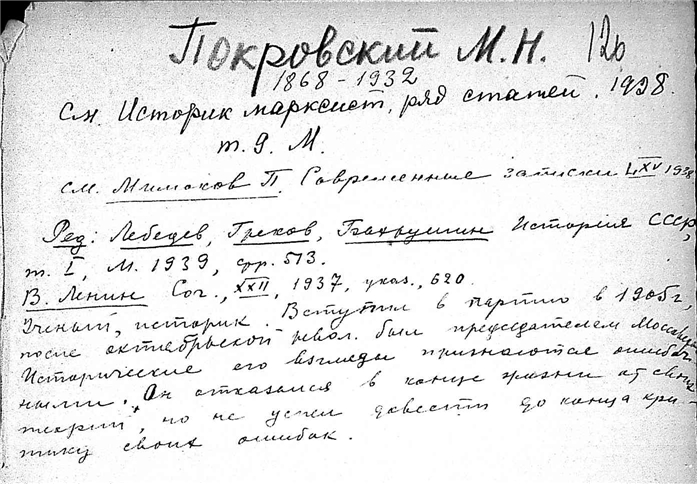 Покровский М.Н. 126
1868-1932
См. Историк марксист, ряд статей. 1928.
т. 9. М.
см. Милюков П. Современные записки LXV 1938
Ред: Лебедев, Греков, Бахрушин История СССР,
т. I, М. 1939, стр. 513.
В. Ленин Соч., XXII, 1937, указ., 620.
Ученый, историк. Вступил в партию в 1905г,
после октябрьской револ. был председателем
Исторические его взгляды признаются ошибоч
ными. Он отказался в конце жизни от своих
теорий, но не успел довести до конца кри-
тику своих ошибок.